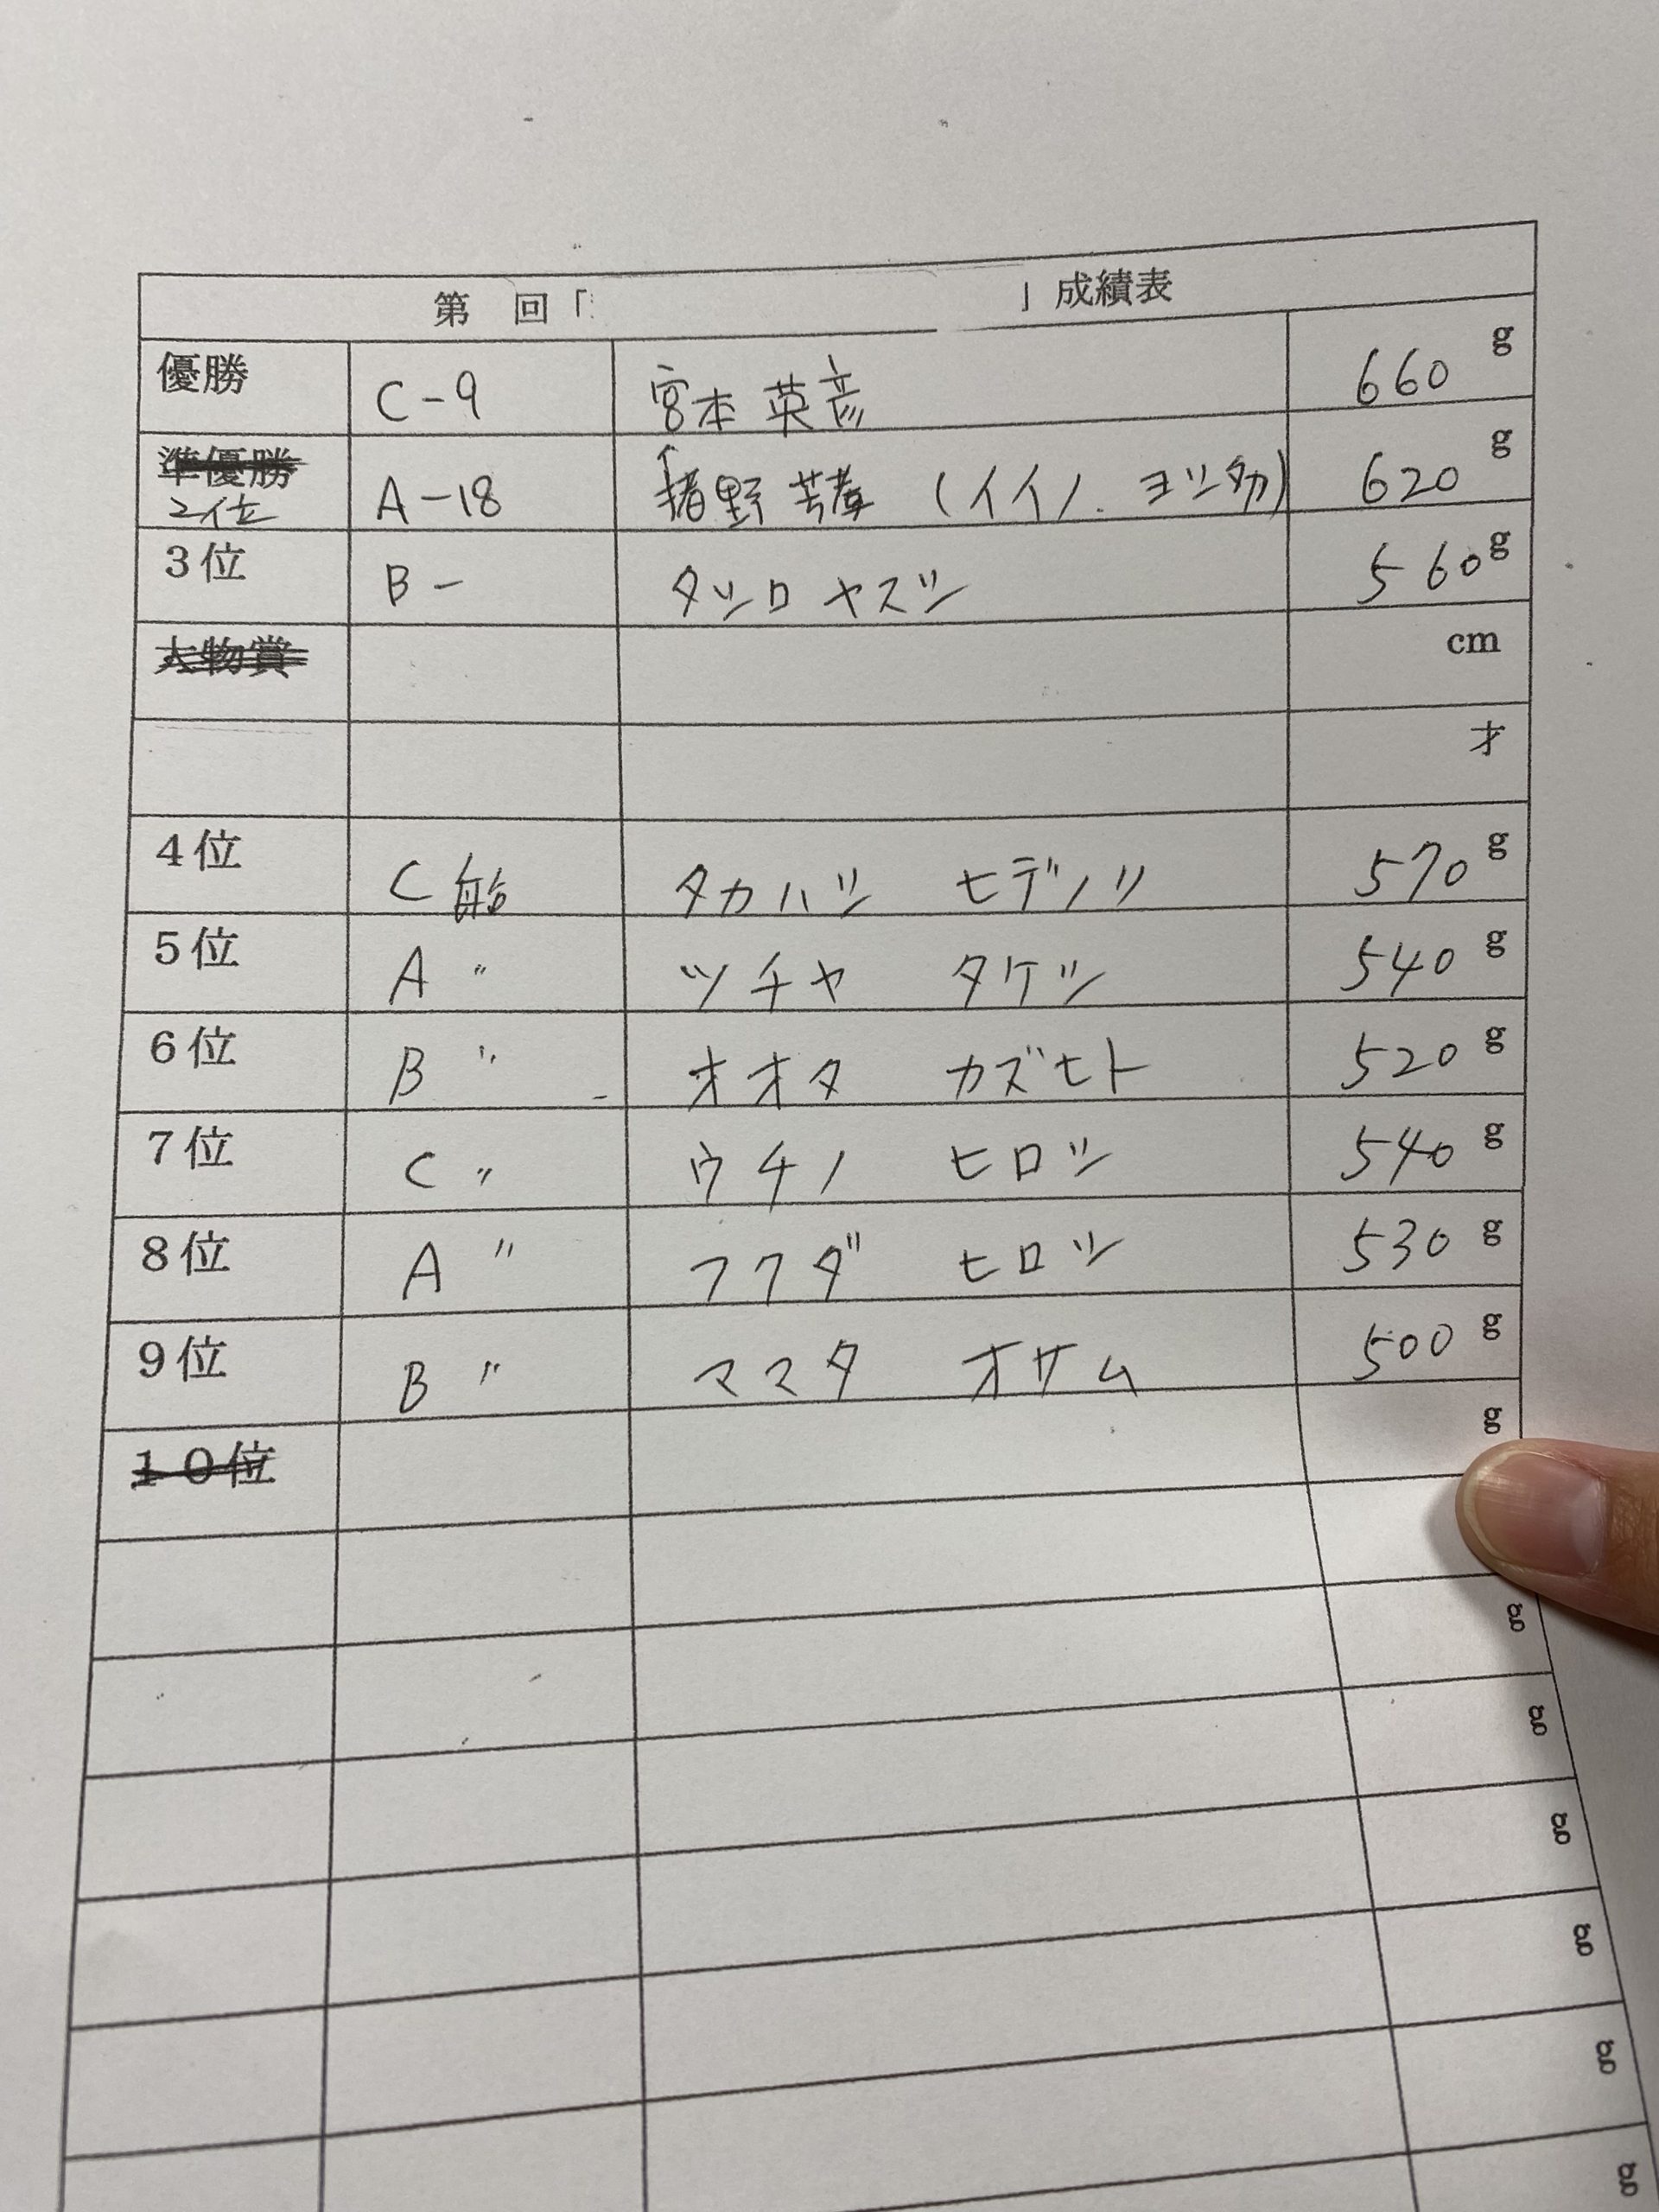 第 回「 」成績表
優勝 C-9 宮本 英彦 660 g
準優勝 2位 A-18 猪野 芳孝 (イイノ. ヨシタカ) 620 g
3位 B- タシロ ヤスシ 560 g
大物賞 cm
才
4位 C 船 タカハシ ヒデノリ 570 g
5位 A 〃 ツチヤ タケシ 540 g
6位 B 〃 オオタ カズヒト 520 g
7位 C 〃 ウチノ ヒロシ 540 g
8位 A 〃 フクダ ヒロシ 530 g
9位 B 〃 ママタ オサム 500 g
10位 g
g
g
g
g
g
g